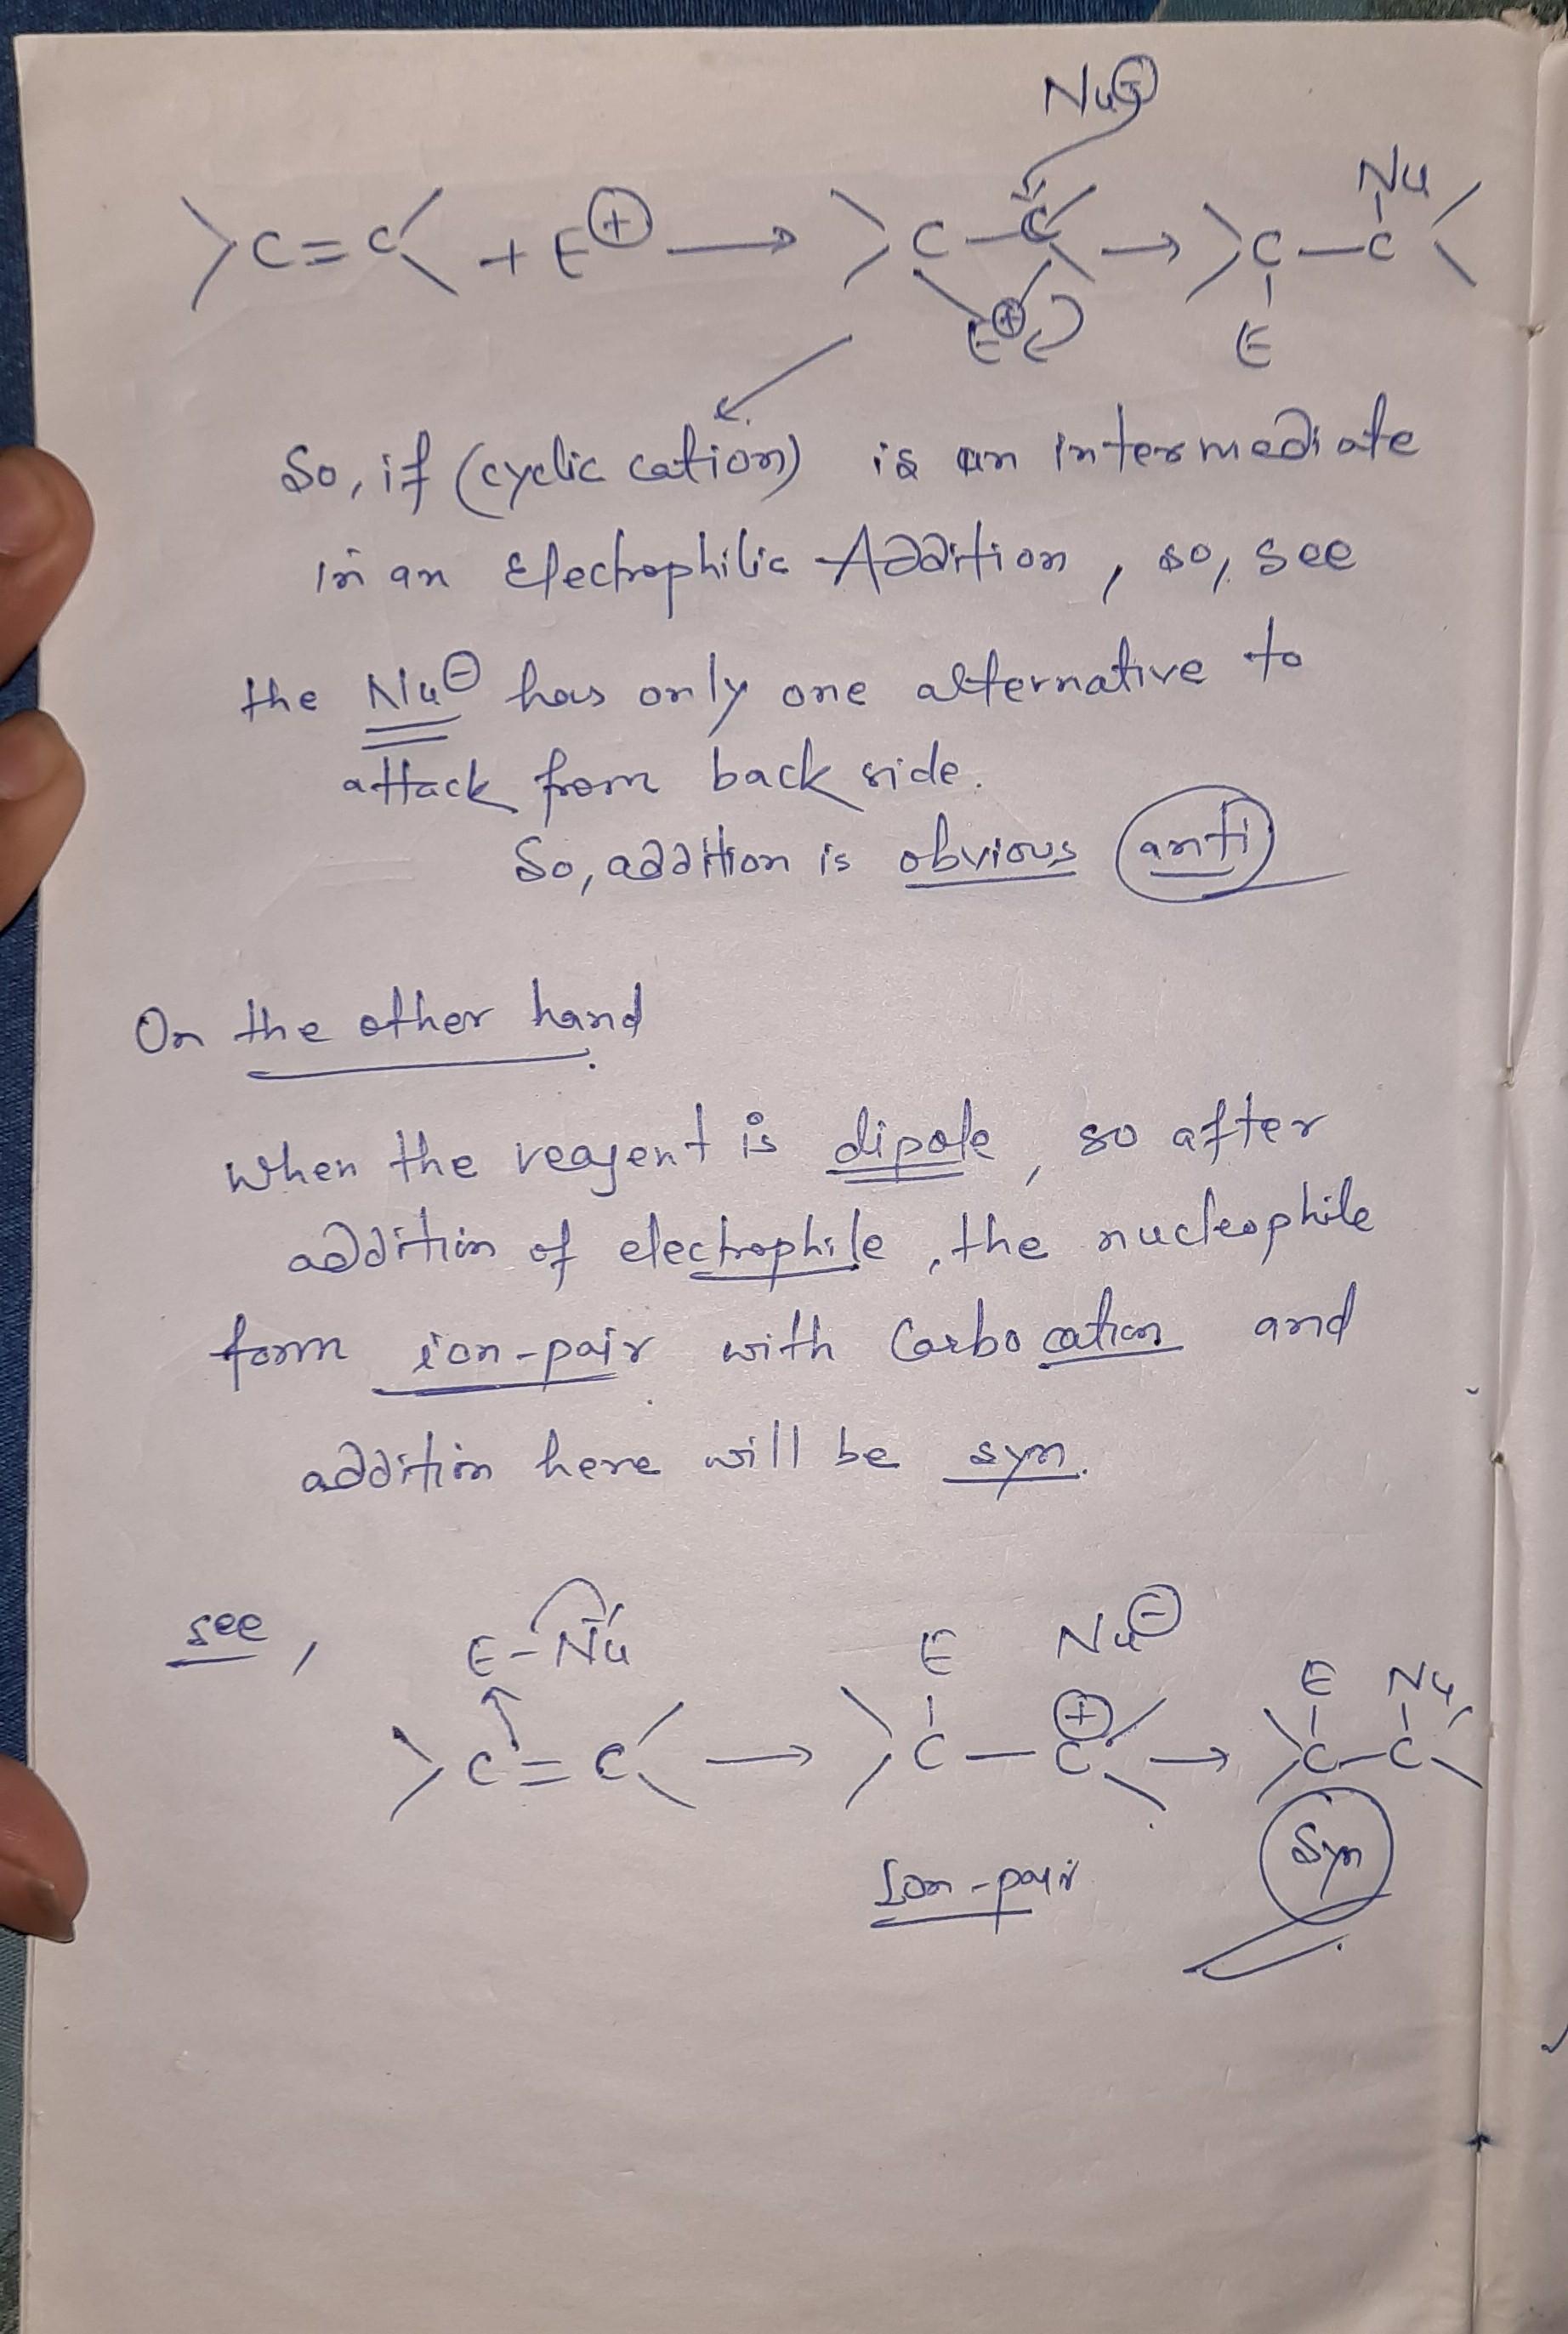 Nu⊖
>C=C< + E⊕ → >C-C< → >C-C<
Nu
E⊕
E
So, if (cyclic cation) is an intermediate
in an Electrophilic Addition, so, see
the Nu⊖ has only one alternative to
attack from back side.
So, addition is obvious anti
On the other hand
when the reagent is dipole, so after
addition of electrophile, the nucleophile
form ion-pair with Carbocation and
addition here will be syn.
see, E-Nu
E Nu⊖
E Nu
>C=C< → >C-C⊕< → >C-C<
Ion-pair
Syn